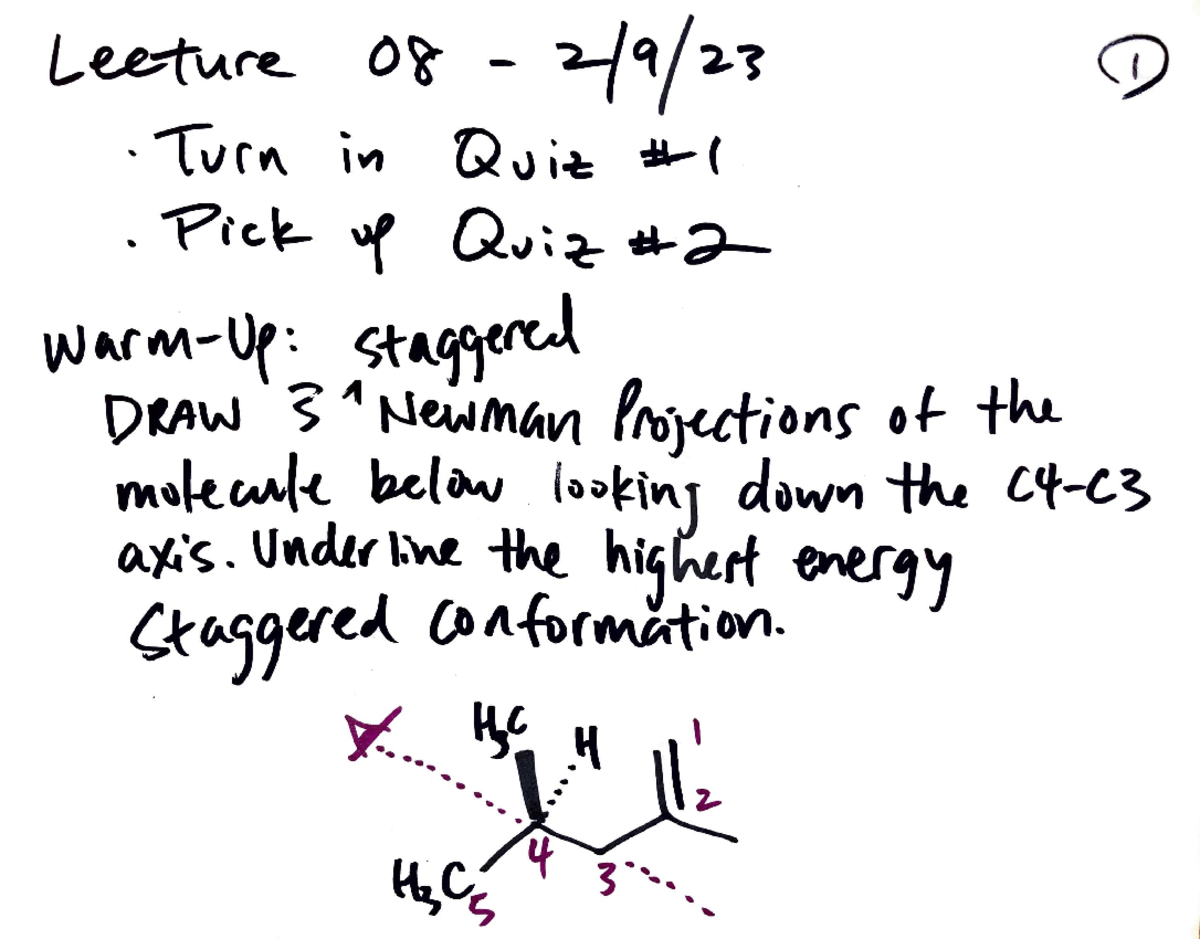 Lecture 08 - 2/9/23
①
· Turn in Quiz #1
· Pick up Quiz #2
Warm-Up: staggered
DRAW 3 ^ Newman Projections of the
molecule below looking down the C4-C3
axis. Underline the highest energy
Staggered conformation.
H₃C H 1
2
4 3
H₃C 5